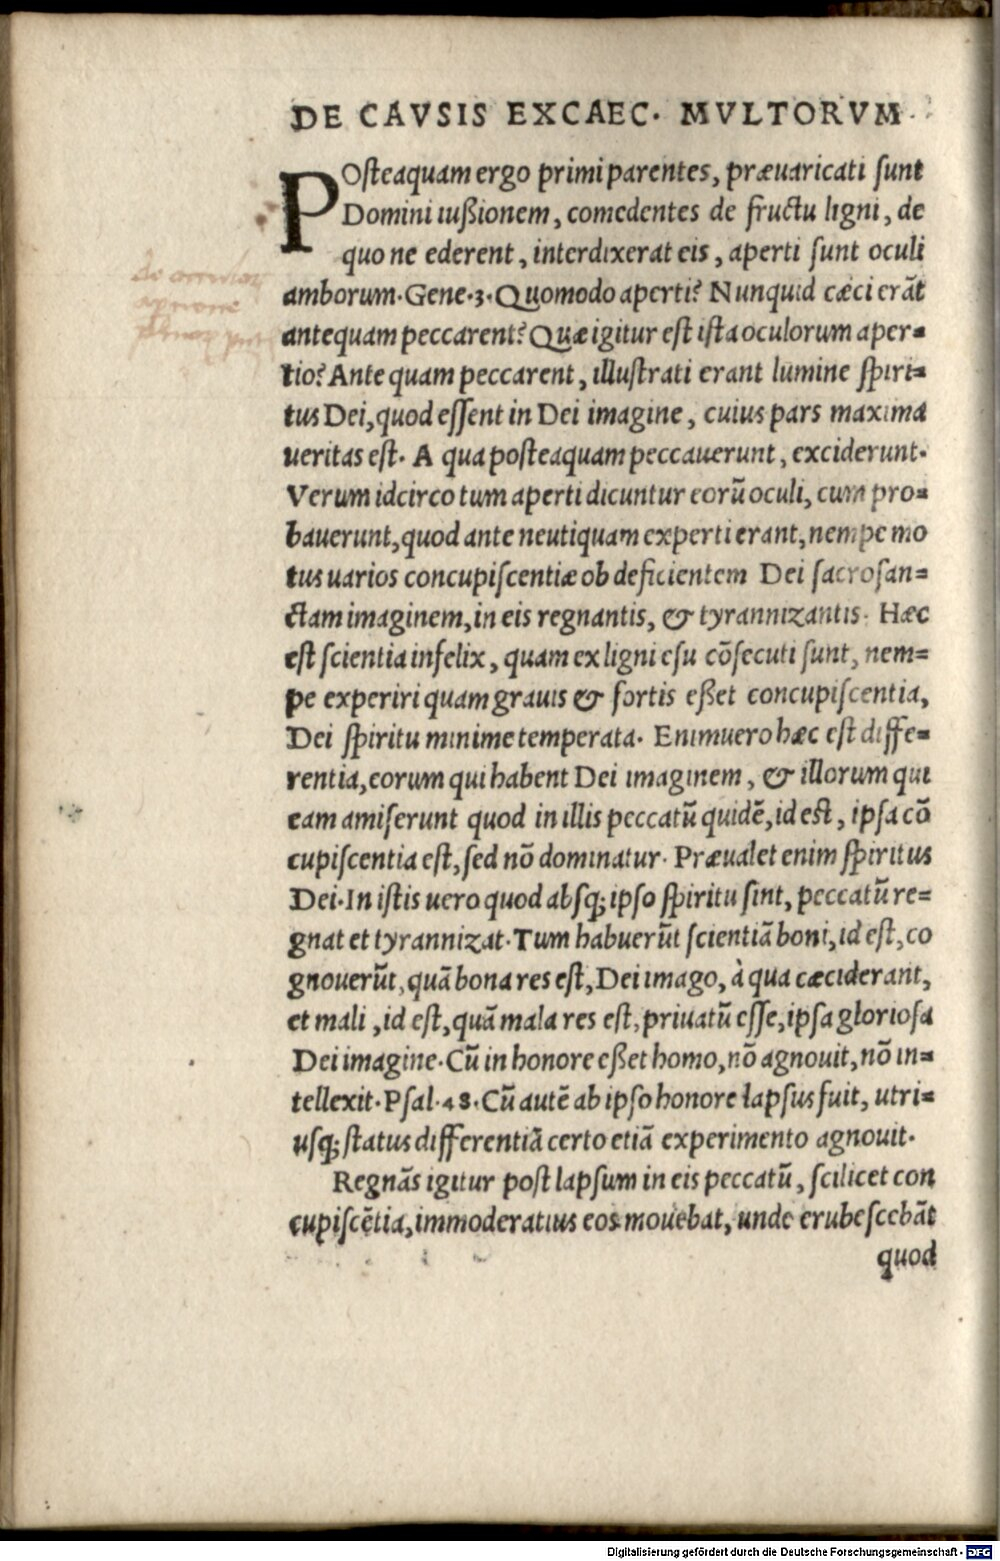 DE CAVSIS EXCAEC. MVLTORVM.
POsteaquam ergo primi parentes, præuaricati sunt
Domini iußionem, comedentes de fructu ligni, de
quo ne ederent, interdixerat eis, aperti sunt oculi
amborum. Gene. 3. Quomodo aperti? Nunquid cæci erãt
antequam peccarent? Quæ igitur est ista oculorum aper=
tio? Ante quam peccarent, illustrati erant lumine spiri=
tus Dei, quod essent in Dei imagine, cuius pars maxima
ueritas est. A qua posteaquam peccauerunt, exciderunt.
Verum idcirco tum aperti dicuntur eorũ oculi, cum pro=
bauerunt, quod ante neutiquam experti erant, nempe mo
tus uarios concupiscentiæ ob deficientem Dei sacrosan=
ctam imaginem, in eis regnantis, & tyrannizantis. Hæc
est scientia infelix, quam ex ligni esu cõsecuti sunt, nem=
pe experiri quam grauis & fortis eßet concupiscentia,
Dei spiritu minime temperata. Enimuero hæc est diffe=
rentia, eorum qui habent Dei imaginem, & illorum qui
eam amiserunt quod in illis peccatũ quidẽ, id est, ipsa cõ
cupiscentia est, sed nõ dominatur. Præualet enim spiritus
Dei. In istis uero quod absq; ipso spiritu sint, peccatũ re=
gnat et tyrannizat. Tum habuerũt scientiã boni, id est, co
gnouerũt, quã bona res est, Dei imago, à qua cæciderant,
et mali, id est, quã mala res est, priuatũ esse, ipsa gloriosa
Dei imagine. Cũ in honore eßet homo, nõ agnouit, nõ in=
tellexit. Psal. 48. Cũ autẽ ab ipso honore lapsus fuit, utri=
usq; status differentiã certo etiã experimento agnouit.
Regnãs igitur post lapsum in eis peccatũ, scilicet con
cupiscẽtia, immoderatius eos mouebat, unde erubescebãt
quod
Digitalisierung gefördert durch die Deutsche Forschungsgemeinschaft - DFG